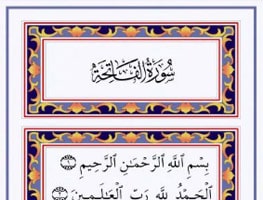 سُورَةُ الفَاتِحَةِ
بِسْمِ اللَّهِ الرَّحْمَٰنِ الرَّحِيمِ ١
الْحَمْدُ لِلَّهِ رَبِّ الْعَالَمِينَ ٢